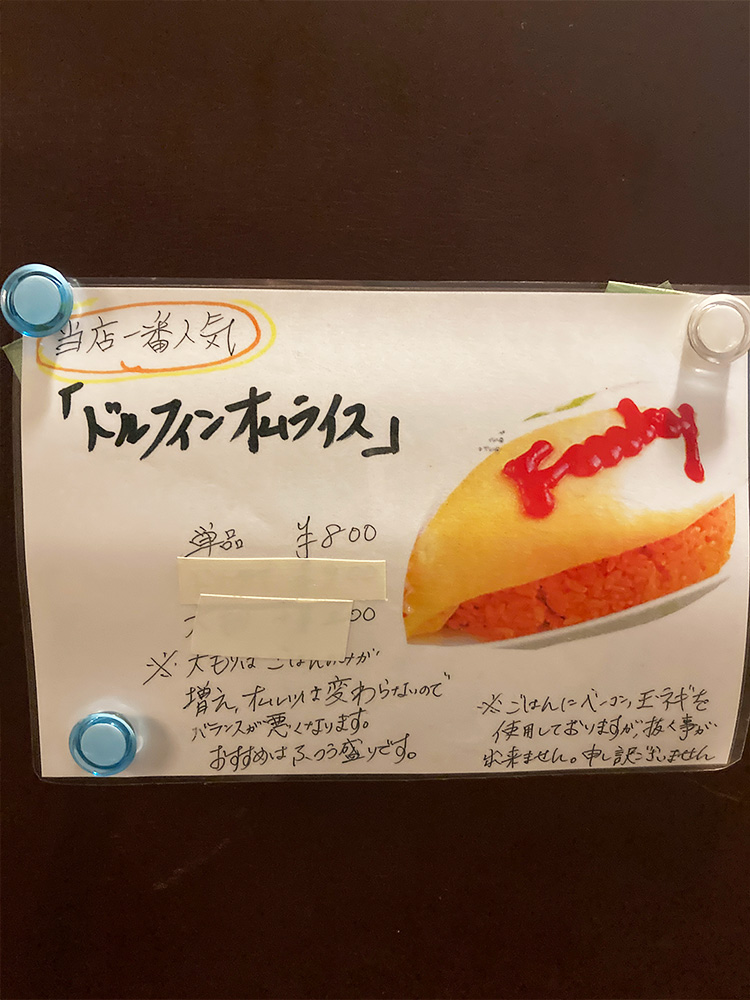 当店一番人気
「ドルフィンオムライス」
単品 ¥800
00
※ 大もりは ごはんのみが
増え、オムレツは変わらないので
バランスが悪くなります。
おすすめは ふつう盛りです。
※ ごはんにベーコン、玉ネギを
使用しておりますが、抜く事が
出来ません。申し訳ございません